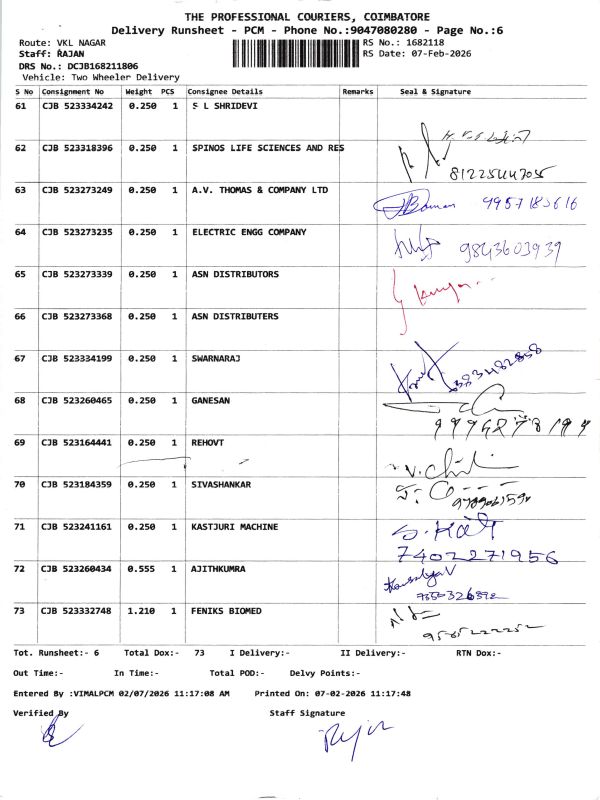 THE PROFESSIONAL COURIERS, COIMBATORE
Delivery Runsheet - PCM - Phone No.:9047080280 - Page No.:6
Route: VKL NAGAR RS No.: 1682118
Staff: RAJAN RS Date: 07-Feb-2026
DRS No.: DCJB168211806
Vehicle: Two Wheeler Delivery
S No Consignment No Weight PCS Consignee Details Remarks Seal & Signature
61 CJB 523334242 0.250 1 S L SHRIDEVI
62 CJB 523318396 0.250 1 SPINOS LIFE SCIENCES AND RES
63 CJB 523273249 0.250 1 A.V. THOMAS & COMPANY LTD
64 CJB 523273235 0.250 1 ELECTRIC ENGG COMPANY 9843603939
65 CJB 523273339 0.250 1 ASN DISTRIBUTORS
66 CJB 523273368 0.250 1 ASN DISTRIBUTERS
67 CJB 523334199 0.250 1 SWARNARAJ
68 CJB 523260465 0.250 1 GANESAN
69 CJB 523164441 0.250 1 REHOVT
70 CJB 523184359 0.250 1 SIVASHANKAR
71 CJB 523241161 0.250 1 KASTJURI MACHINE
7402271956
72 CJB 523260434 0.555 1 AJITHKUMRA
73 CJB 523332748 1.210 1 FENIKS BIOMED
Tot. Runsheet:- 6 Total Dox:- 73 I Delivery:- II Delivery:- RTN Dox:-
Out Time:- In Time:- Total POD:- Delvy Points:-
Entered By :VIMALPCM 02/07/2026 11:17:08 AM Printed On: 07-02-2026 11:17:48
Verified By Staff Signature